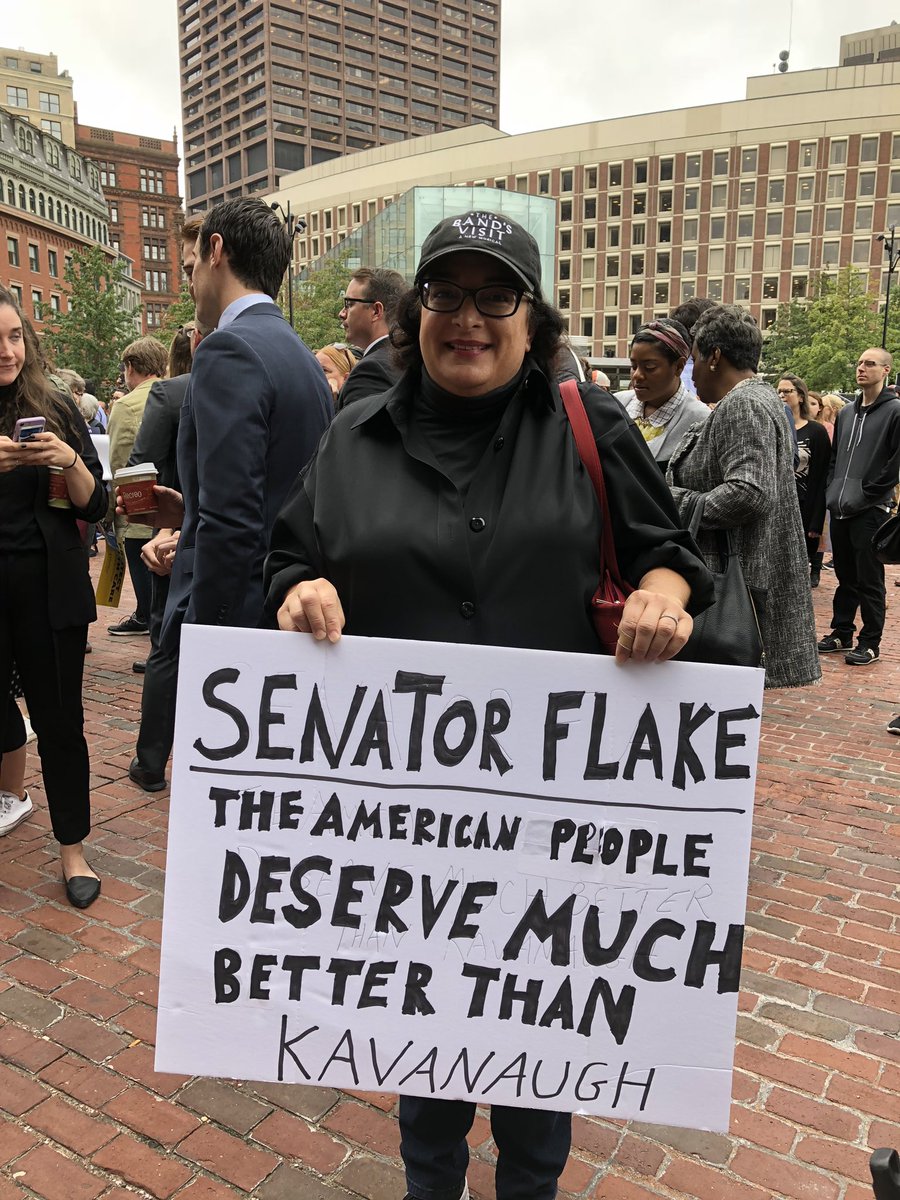 THE
BAND'S
VISIT
A NEW MUSICAL
Recreo
SENATOR FLAKE
THE AMERICAN PEOPLE
DESERVE MUCH
BETTER THAN
KAVANAUGH